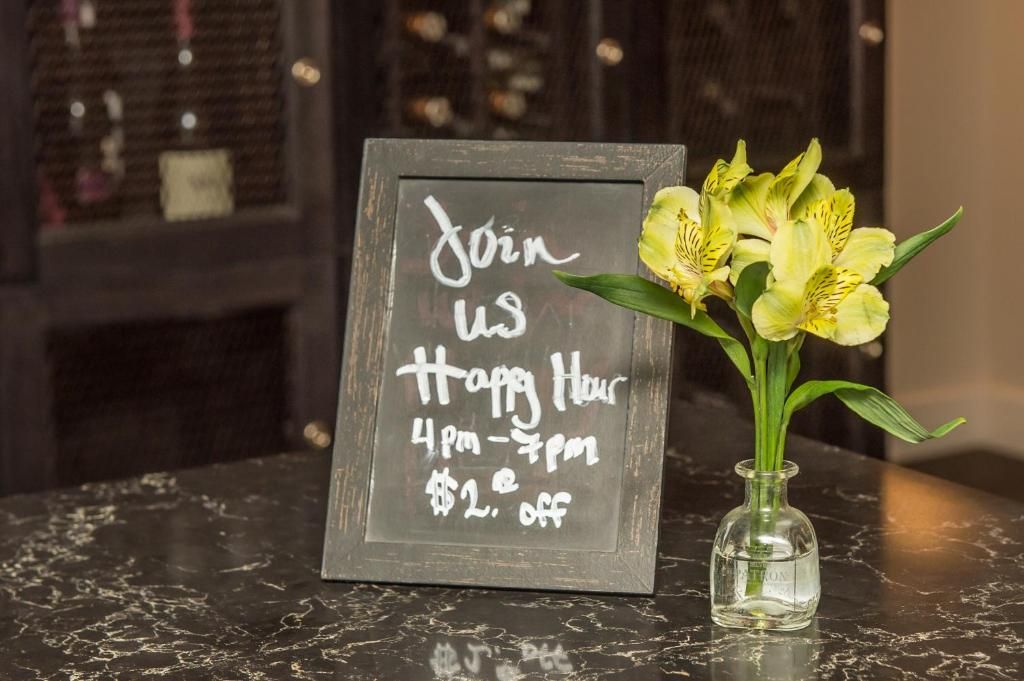 Join
us
Happy Hour
4pm-7pm
$2.00 off
PATRÓN